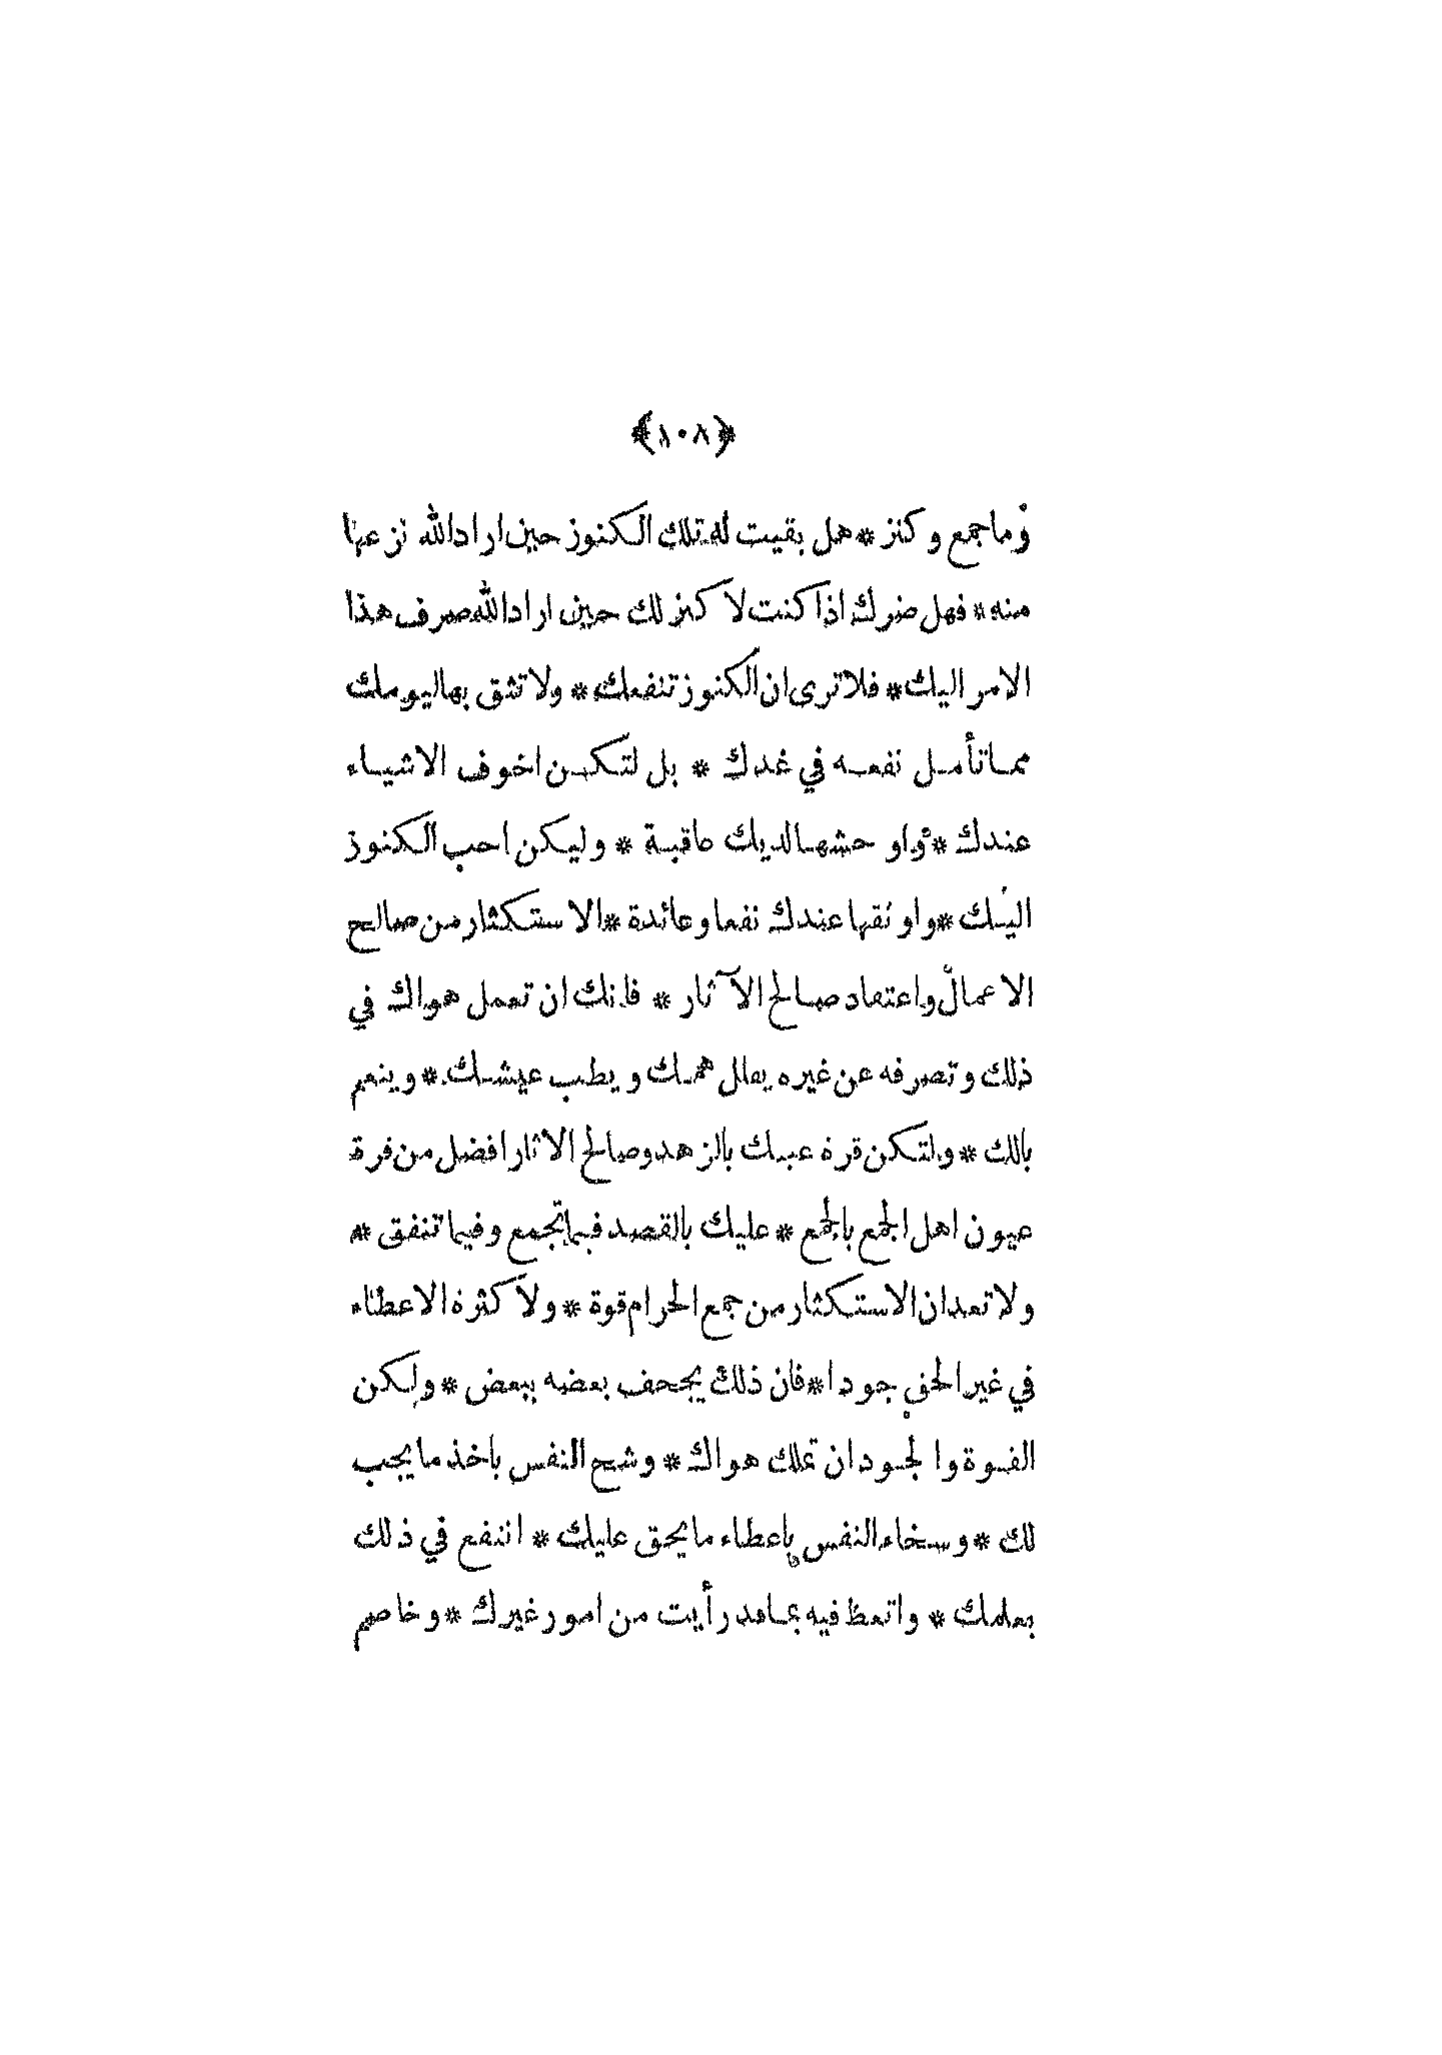 ﴿١٠٨﴾
وما جمع وكنز * هل بقيت له تلك الكنوز حين اراد الله نزعها
منه * فهل ضرك اذا كنت لا كنز لك حين اراد الله صرف هذا
الامر اليك * فلا ترى ان الكنوز تنفعك * ولا تثق بها ليومك
مما تأمل نفعه في غدك * بل لتكن اخوف الاشياء
عندك * واوحشها لديك عاقبة * وليكن احب الكنوز
اليك * واوثقها عندك نفعا وعائدة * الاستكثار من صالح
الاعمال واعتقاد صالح الآثار * فانك ان تعمل هواك في
ذلك وتصرفه عن غيره يقلل همك ويطب عيشك * وينعم
بالك * ولتكن قرة عينك بالزهد وصالح الاثار افضل من قرة
عيون اهل الجمع بالجمع * عليك بالقصد فيما تجمع وفيما تنفق *
ولا تعدان الاستكثار من جمع الحرام قوة * ولا كثرة الاعطاء
في غير الحق جودا * فان ذلك يجحف بعضه ببعض * ولكن
القوة والجود ان تملك هواك * وشح النفس باخذ ما يجب
لك * وسخاء النفس باعطاء ما يحق عليك * انتفع في ذلك
بعلمك * واتعظ فيه بما قد رأيت من امور غيرك * وخاصم